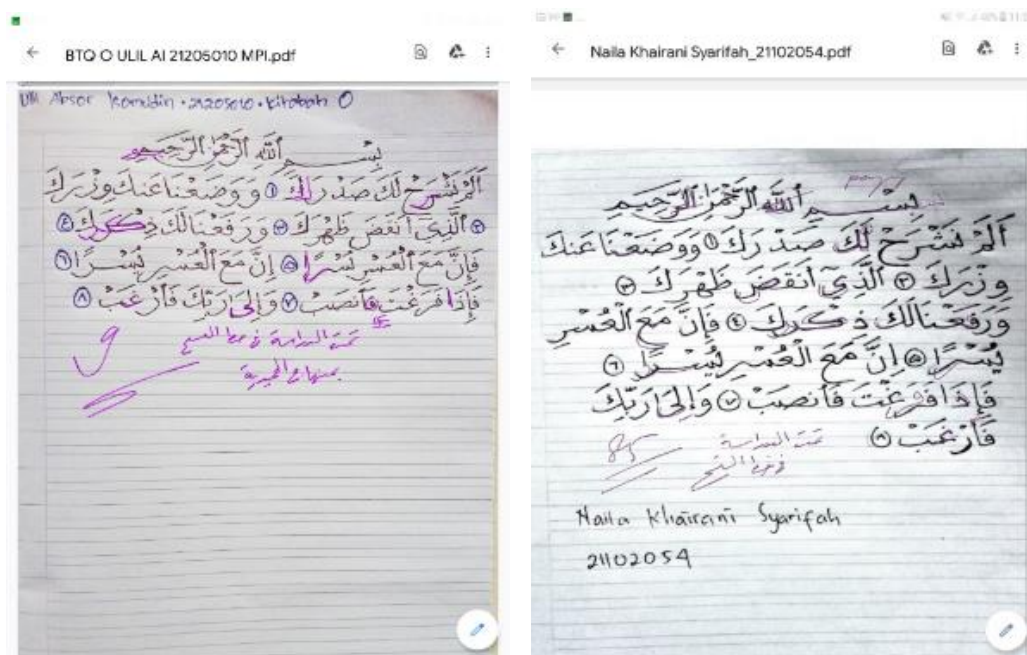 BTQ O ULIL Al 21205010 MPI.pdf
21205010 • kitabah O
بِسْــمِ اللَّهِ الرَّحْمٰنِ الرَّحِيمِ
أَلَمْ نَشْرَحْ لَكَ صَدْرَكَ ١ وَوَضَعْنَا عَنكَ وِزْرَكَ
٢ الَّذِيٓ أَنقَضَ ظَهْرَكَ ٣ وَرَفَعْنَا لَكَ ذِكْرَكَ ٤
فَإِنَّ مَعَ الْعُسْرِ يُسْرًا ٥ إِنَّ مَعَ الْعُسْرِ يُسْرًا ٦
فَإِذَا فَرَغْتَ فَانصَبْ ٧ وَإِلَىٰ رَبِّكَ فَارْغَب ٨
تمت الدراسة في خط النسخ
Naila Khairani Syarifah_21102054.pdf
بِسْــمِ اللَّهِ الرَّحْمٰنِ الرَّحِيمِ
أَلَمْ نَشْرَحْ لَكَ صَدْرَكَ ١ وَوَضَعْنَا عَنكَ
وِزْرَكَ ٢ الَّذِيٓ أَنقَضَ ظَهْرَكَ ٣
وَرَفَعْنَا لَكَ ذِكْرَكَ ٤ فَإِنَّ مَعَ الْعُسْرِ
يُسْرًا ٥ إِنَّ مَعَ الْعُسْرِ يُسْرًا ٦
فَإِذَا فَرَغْتَ فَانصَبْ ٧ وَإِلَىٰ رَبِّكَ
فَارْغَبْ ٨
85
تمت الدراسة
في خط النسخ
Naila Khairani Syarifah
21102054